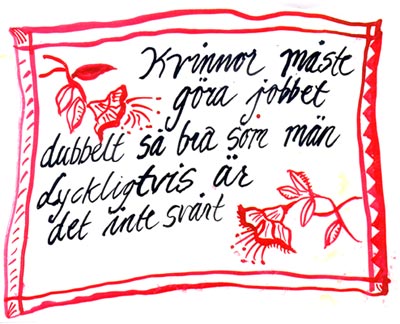 Kvinnor måste
göra jobbet
dubbelt så bra som män
Lyckligtvis är
det inte svårt